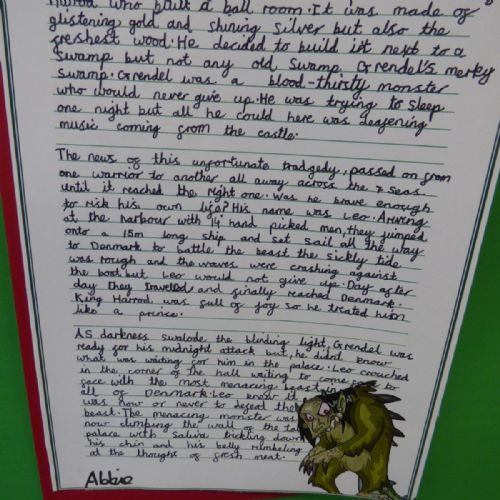 who built a ball room. It was made of
glistening gold and shining silver but also the
freshest wood. He decided to build it next to a
swamp but not any old swamp Grendel's merky
swamp. Grendel was a blood-thirsty monster
who would never give up. He was trying to sleep
one night but all he could here was deafening
music coming from the castle.
The news of this unfortunate tradgedy, passed on from
one warrior to another all away across the 7 seas.
until it reached the right one. Was he brave enough
to risk his own life? His name was Leo. Arriving
at the harbour with 14 hand picked men, they jumped
onto a 15m long ship and set sail all the way
to Denmark to battle the beast the sickly tide
was rough and the waves were crashing against
the boat but Leo would not give up. Day after
day they travelled and finally reached Denmark.
King Harrod, was full of joy so he treated him
like a prince.
As darkness swalode the blinding light, Grendel was
ready for his midnight attack but, he didnt know
what was waiting for him in the palace. Leo crouched
in the corner of the hall waiting to come face to
face with the most menacing beast
all of Denmark. Leo knew it
was now or never to defeat the
beast. The menacing monster was
now climbing the wall of the
palace with saliva trickling down
his chin and his belly rumbeling
at the thought of fresh meat.
Abbie